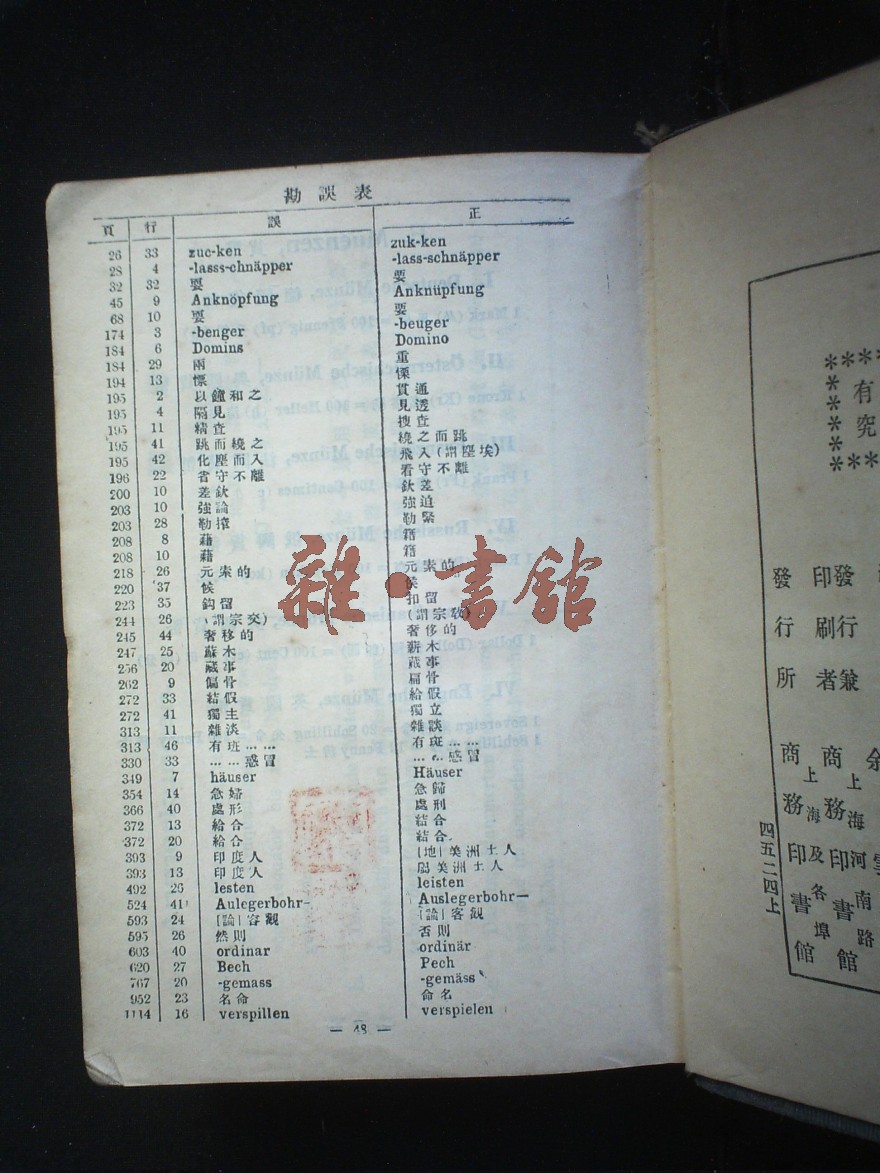 勘誤表
頁 行 誤 正
26 33 zuc-ken zuk-ken
28 4 -lasss-chnäpper -lass-schnäpper
32 32
45 9 Anknöpfung Anknüpfung
68 10
174 3 -benger -beuger
184 6 Domins Domino
184 29 兩 重
194 13 慓 慄
195 2 以鐘和之 貫通
195 4 隔見 見透
195 11 精查 搜查
195 41 跳而繞之 繞之而跳
195 42 化塵而入 飛入(謂塵埃)
196 22 省守不離 看守不離
200 10 差欽 欽差
203 10 強論 強迫
203 28 勒㨯 勒緊
208 8 藉 籍
208 10 藉 籍
218 26 元素的 元素的
220 37 候
223 35 鈎留 扣留
244 26 (謂宗交) (謂宗教)
245 44 奢移的 奢侈的
247 25 蘇木
256 20 蕆事
262 9 偏骨 扁骨
272 33 結假 給假
272 41 獨主 獨立
313 11 雜淡 雜談
313 46 有班…… 有斑……
330 33 ……惑冒 ……感冒
349 7 häuser Häuser
354 14 急婦 急歸
366 40 處形 處刑
372 13 給合 結合
372 20 給合 結合
393 9 印度人 [地]美洲土人
393 13 印度人 屬美洲土人
492 26 lesten leisten
524 41 Aulegerbohr- Auslegerbohr—
593 24 [論]容觀 [論]客觀
595 26 然則 否則
603 40 ordinar ordinär
620 27 Bech Pech
767 20 -gemass -gemäss
952 23 名命 命名
1114 16 verspillen verspielen
— 48 —
雜·書館
有
究
印發行刷兼者
發行所
商務印書館
上海河南路
商務印書館
上海及各埠
四五二四上